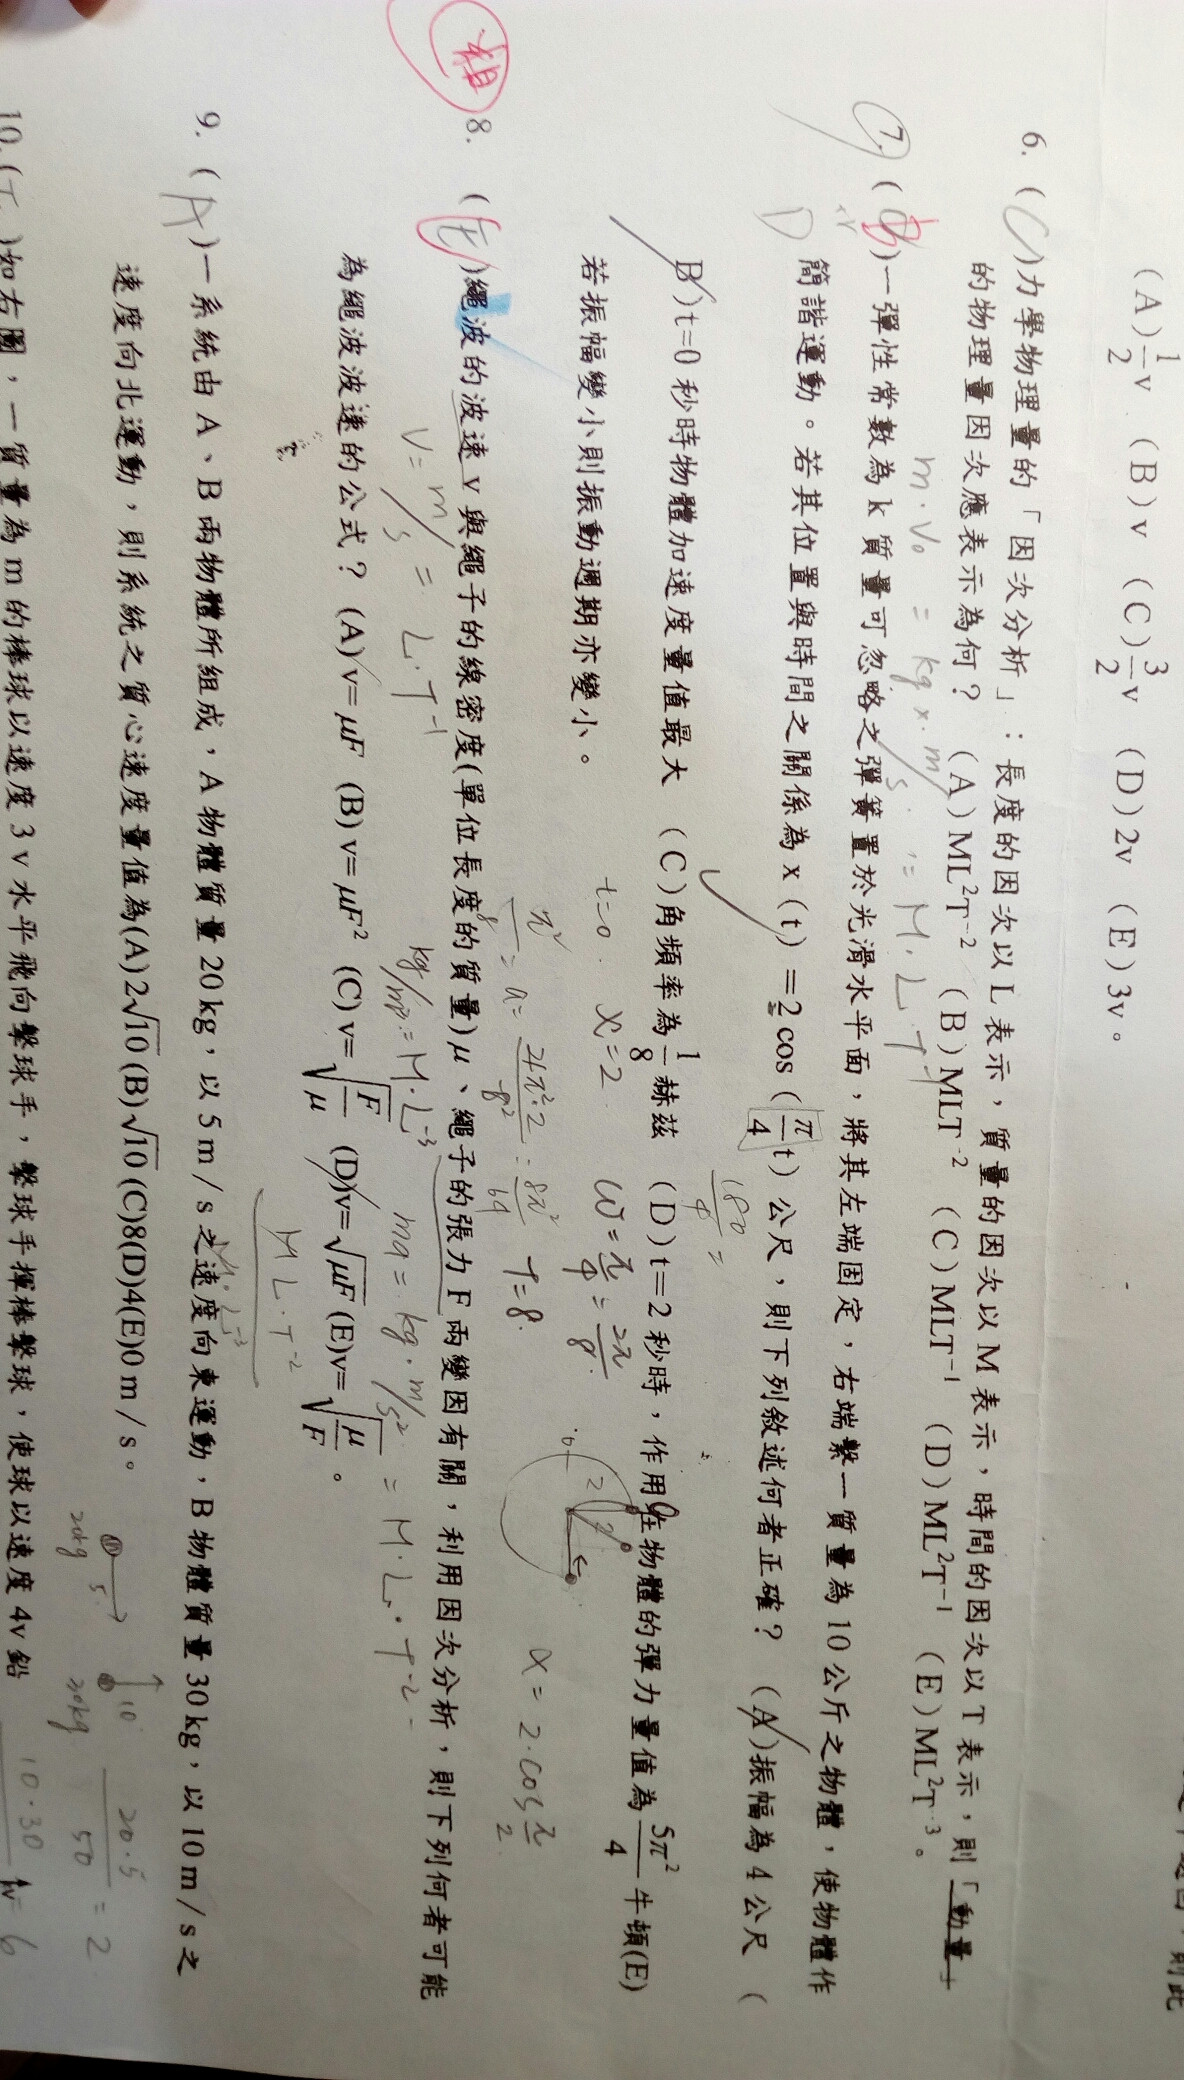 則此
(A)1/2 v (B)v (C)3/2 v (D)2v (E)3v。
6. (C)力學物理量的「因次分析」:長度的因次以L表示,質量的因次以M表示,時間的因次以T表示,則「動量」
的物理量因次應表示為何? (A)ML²T⁻² (B)MLT⁻² (C)MLT⁻¹ (D)ML²T⁻¹ (E)ML²T⁻³。
m·V₀ = kg × m/s = M·L·T⁻¹
7. ( )一彈性常數為k質量可忽略之彈簧置於光滑水平面,將其左端固定,右端繫一質量為10公斤之物體,使物體作
D
簡諧運動。若其位置與時間之關係為x(t)=2cos(π/4 t)公尺,則下列敘述何者正確? (A)振幅為4公尺 (
180/4 =
B)t=0秒時物體加速度量值最大 (C)角頻率為1/8赫茲 (D)t=2秒時,作用在物體的彈力量值為5π²/4牛頓(E)
若振幅變小則振動週期亦變小。
t=0. X=2 ω=π/4=2π/8.
π²/8 = a = 4π²·2/8² = 8π²/64 T=8.
2
x=2·cos π/2
粗
8. (E)繩波的波速v與繩子的線密度(單位長度的質量)μ、繩子的張力F兩變因有關,利用因次分析,則下列何者可能
V=m/s = L·T⁻¹ kg/m³=M·L⁻³ ma=kg·m/s²=M·L·T⁻²
為繩波波速的公式? (A)v=μF (B)v=μF² (C)v=√(F/μ) (D)v=√μF (E)v=√(μ/F)。
M·L⁻³
ML·T⁻²
9. (A)一系統由A、B兩物體所組成,A物體質量20kg,以5m/s之速度向東運動,B物體質量30kg,以10m/s之
速度向北運動,則系統之質心速度量值為(A)2√10(B)√10(C)8(D)4(E)0m/s。
20kg 5 10 30kg 20·5/50 = 2
10·30 = 6
10.( )如右圖,一質量為m的棒球以速度3v水平飛向擊球手,擊球手揮棒擊球,使球以速度4v鉛